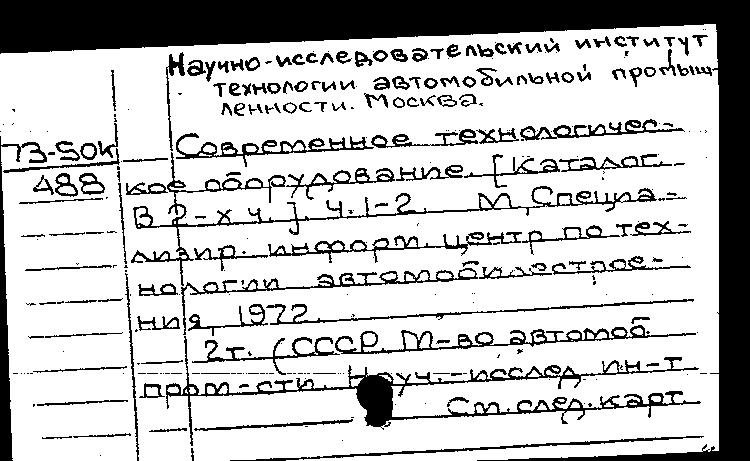 Научно-исследовательский институт
технологии автомобильной промыш-
ленности. Москва.
73-50к Современное технологичес-
488 кое оборудование. [Каталог
В 2-х ч.]. Ч. 1-2. М, Специа-
лизир. информ. центр по тех-
нологии автомобилестрое-
ния, 1972.
2т. (СССР. М-во автомоб.
пром-сти. Науч.-исслед. ин-т
См. след. карт.